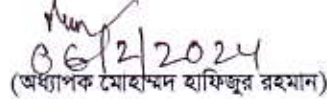 06/2/2024
(অধ্যাপক মোহাম্মদ হাফিজুর রহমান)